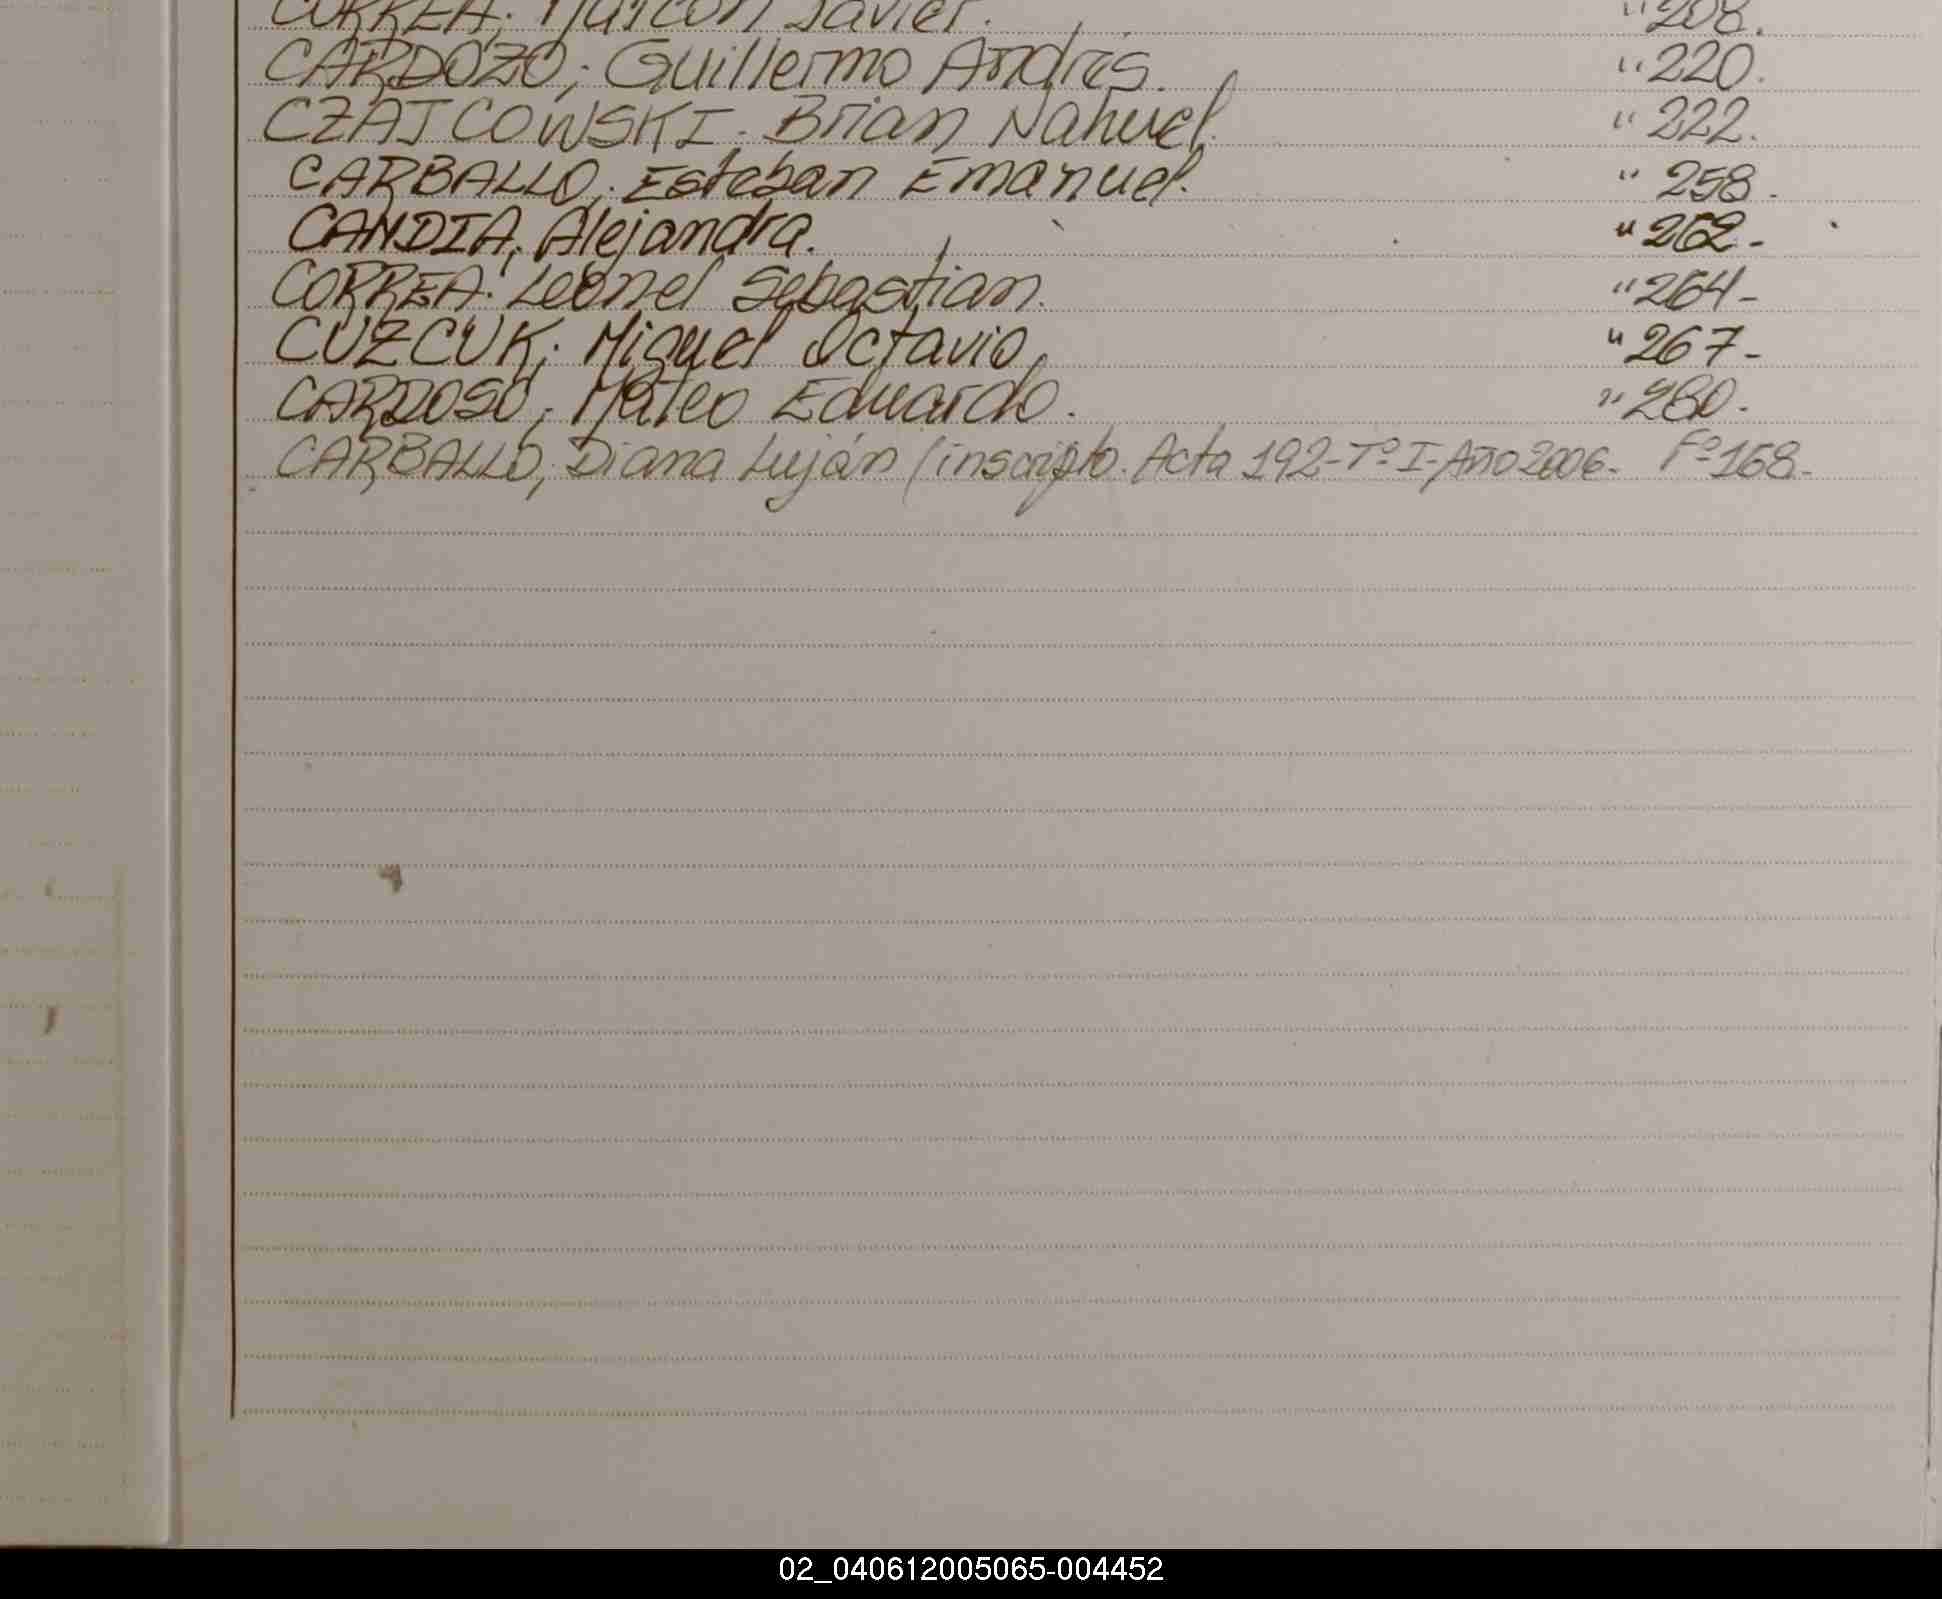 CORREA; Maicon Javier. " 208.
CARDOZO; Guillermo Andrés. " 220.
CZAJCOWSKI. Brian Nahuel. " 222.
CARBALLO; Esteban Emanuel. " 258.
CANDIA; Alejandra. " 262-
CORREA. Leonel Sebastian. " 264-
CUZCUK; Miguel Octavio. " 267-
CARDOSO; Mateo Eduardo. " 280.
CARBALLO; Diana Luján (inscripto. Acta 192-Tº I-Año 2006- Fº 168-
02_040612005065-004452